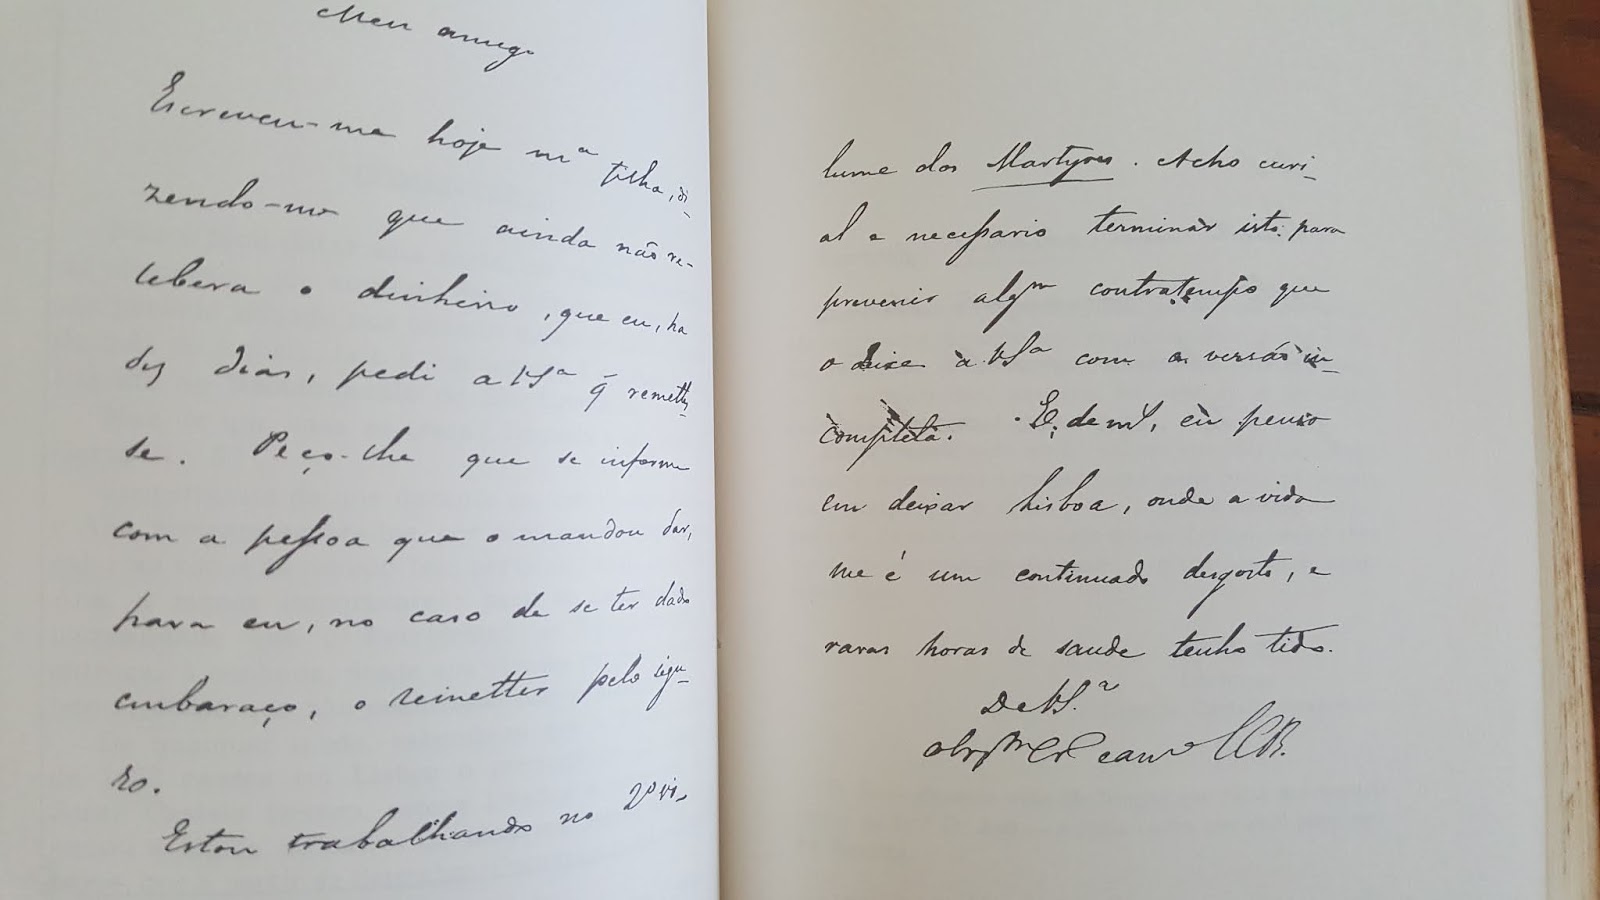 Meu amigo
Escreveu-me hoje mª filha, di-
zendo-me que ainda não re-
cebera o dinheiro, que eu, ha
dez dias, pedi a VSª q̃ remettes-
se. Peço-lhe que se informe
com a pessoa que o mandou dar,
para eu, no caso de se ter dado
embaraço, o remetter pelo segu-
ro.
Estou trabalhando no 2º vo-
lume dos Martyres. Acho curi-
al e necessario terminar isto: para
prevenir algm contratempo que
o deixe a VSª com a versão in-
completa. E, de mais, eu penso
em deixar Lisboa, onde a vida
me é um continuado desgosto, e
raras horas de saude tenho tido.
De VSª
obrgmo